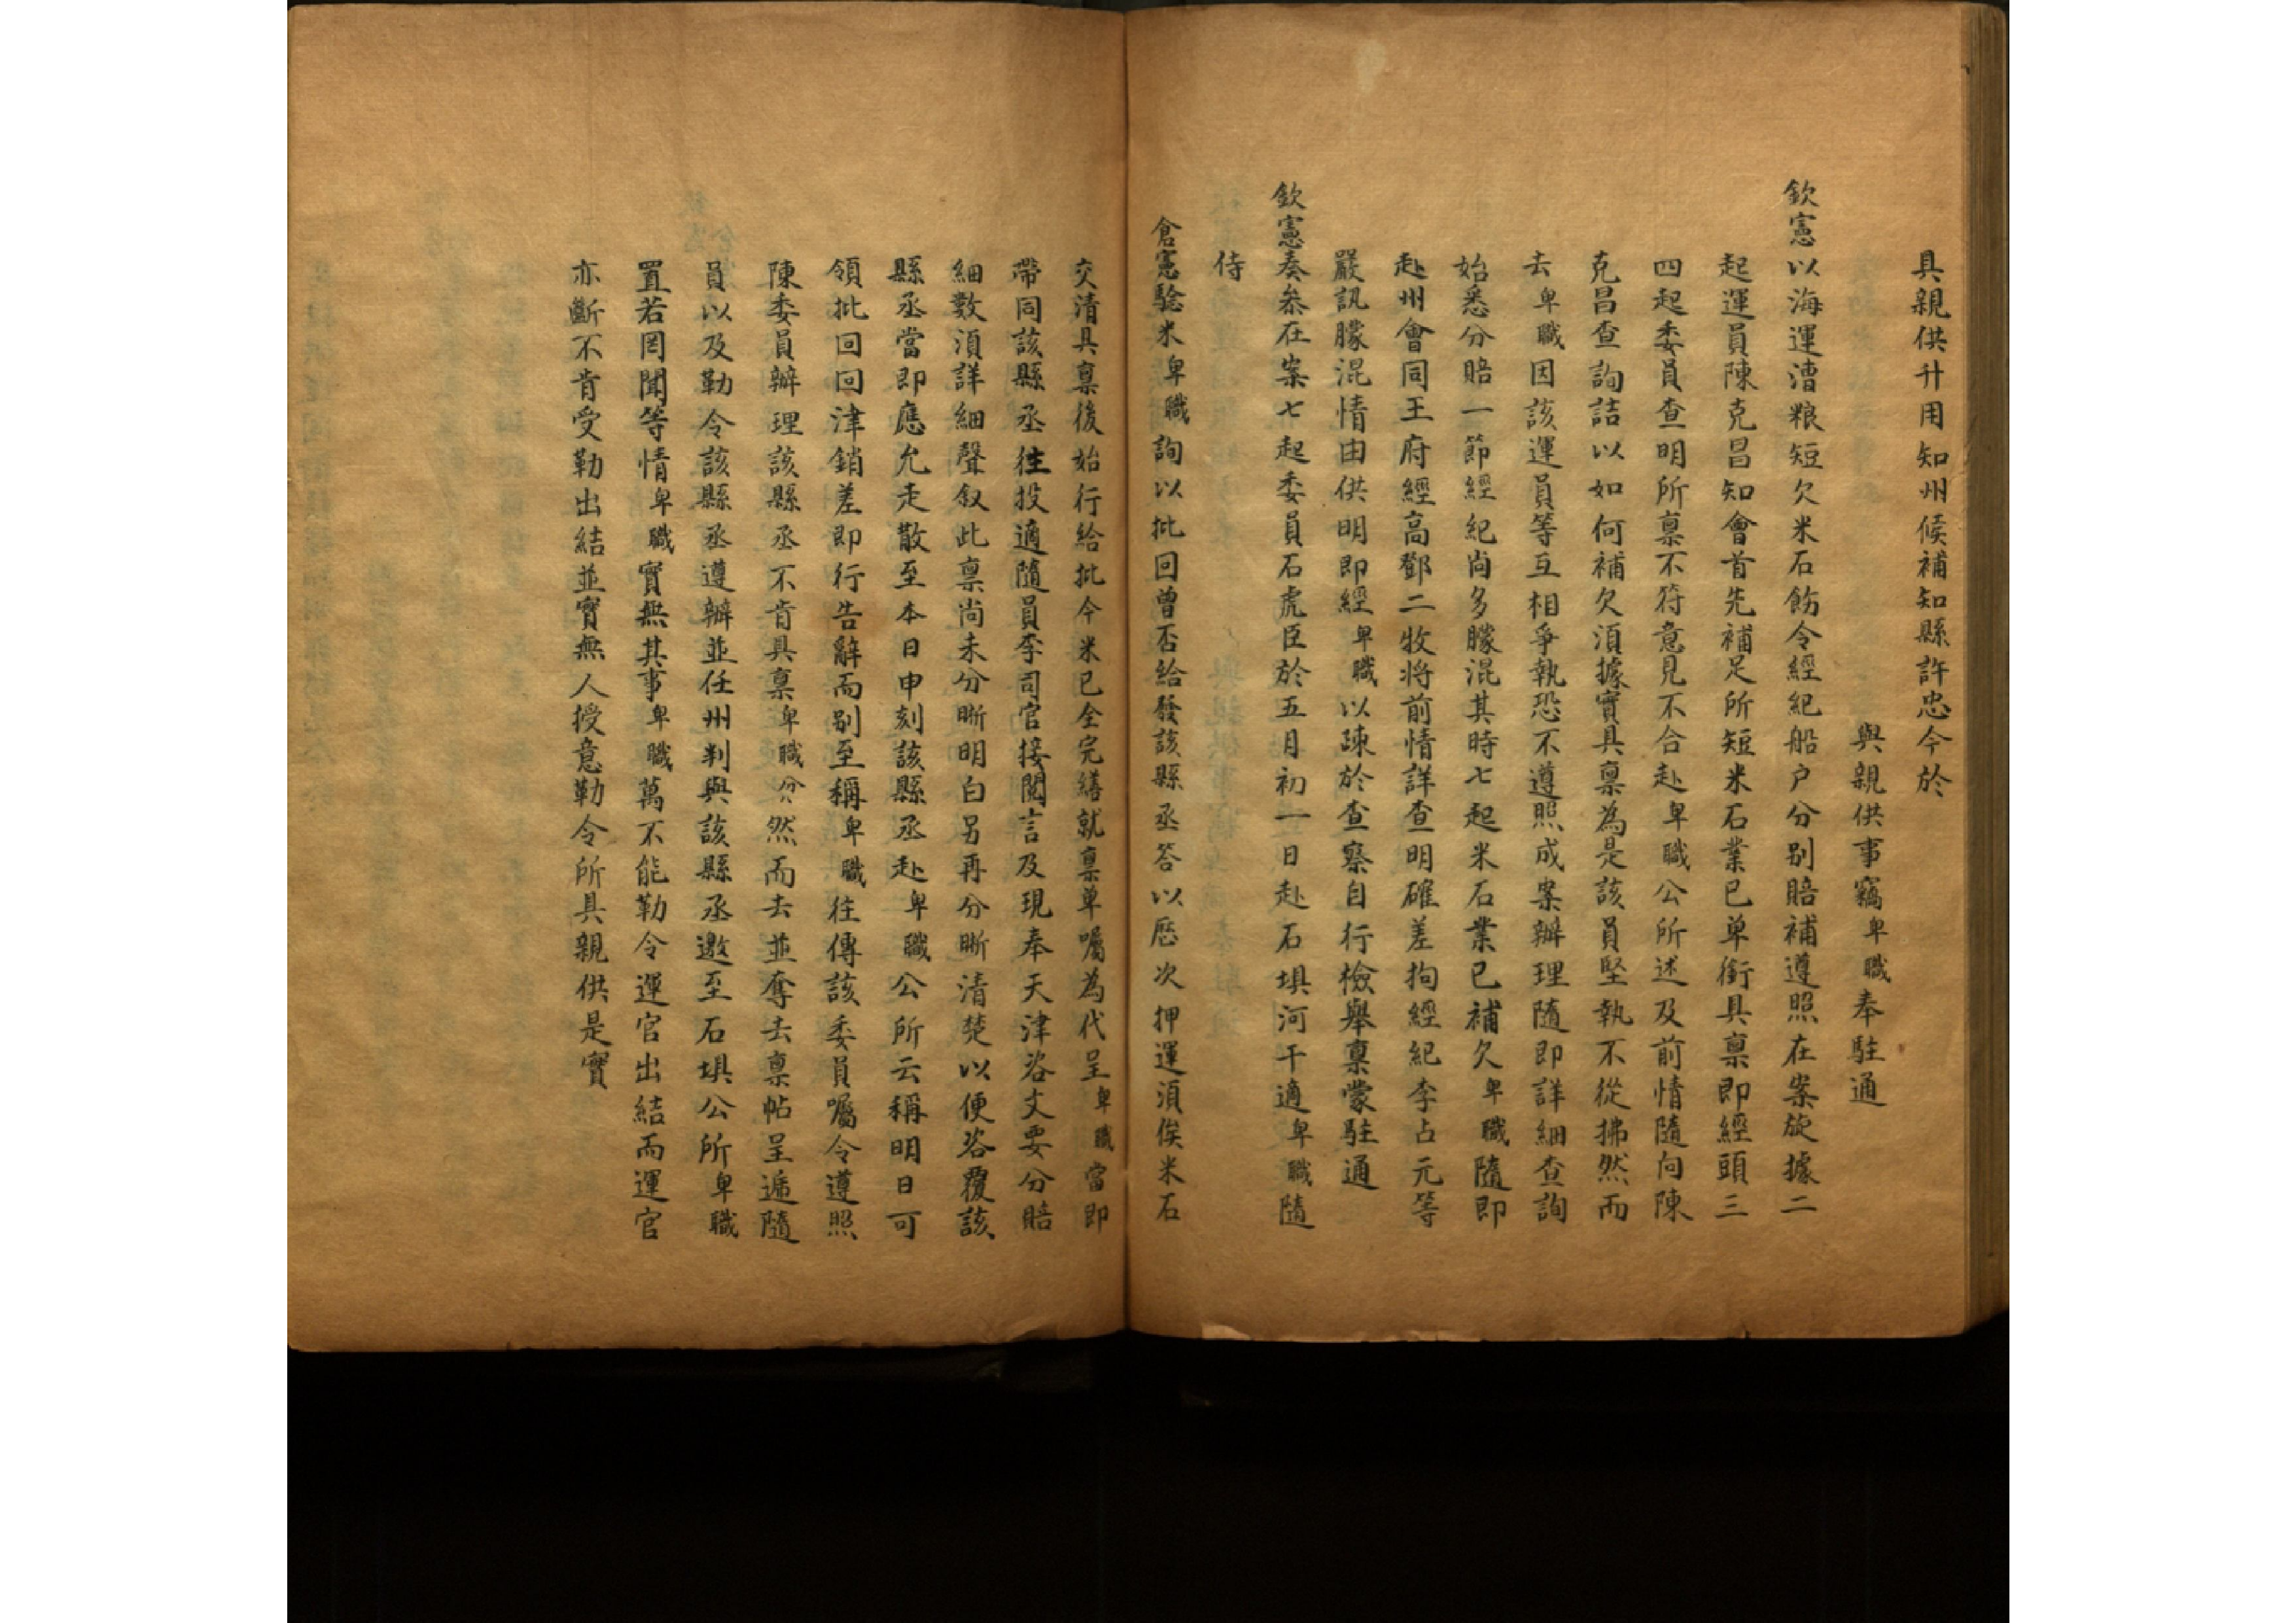 具親供升用知州候補知縣許忠今於
與親供事竊卑職奉駐通
欽憲以海運漕粮短欠米石飭令經紀船户分别賠補遵照在案旋據二
起運員陳克昌知會首先補足所短米石業已单銜具禀即經頭三
四起委員查明所禀不符意見不合赴卑職公所述及前情隨向陳
克昌查詢詰以如何補欠湏據實具禀為是該員堅執不從拂然而
去卑職因該運員等互相爭執恐不遵照成案辦理隨即詳細查詢
始悉分賠一節經紀尚多朦混其時七起米石業已補欠卑職隨即
赴州會同王府經高鄧二牧将前情詳查明確差拘經紀李占元等
嚴訊朦混情由供明即經卑職以疎於查察自行檢舉禀蒙駐通
欽憲奏叅在案七起委員石虎臣於五月初一日赴石埧河干適卑職隨
侍
倉憲騐米卑職詢以批回曾否給發該縣丞答以歷次押運湏俟米石
交清具禀後始行給批今米已全完繕就禀单囑為代呈卑職當即
帶同該縣丞往投適隨員李司官接閲言及現奉天津咨文要分賠
細數湏詳細聲叙此禀尚未分晰明白另再分晰清楚以便咨覆該
縣丞當即應允走散至本日申刻該縣丞赴卑職公所云稱明日可
領批回回津銷差即行告辭而别至稱卑職往傳該委員囑令遵照
陳委員辦理該縣丞不肯具禀卑職忿然而去並奪去禀帖呈遞隨
員以及勒令該縣丞遵辦並任州判與該縣丞邀至石埧公所卑職
置若罔聞等情卑職實無其事卑職萬不能勒令運官出結而運官
亦斷不肯受勒出結並實無人授意勒令所具親供是實